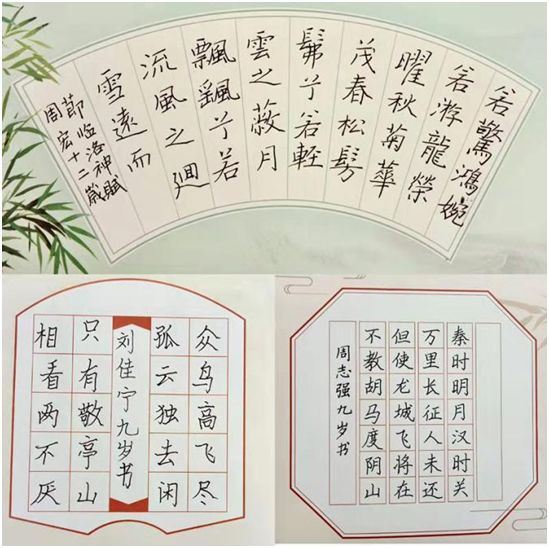 若驚鴻婉
若游龍榮
曜秋菊華
茂春松髣
髴兮若輕
雲之蔽月
飄颻兮若
流風之廻
雪遠而
節临洛神賦
周宏十二歲
众鸟高飞尽
孤云独去闲
刘佳宁九岁书
只有敬亭山
相看两不厌
秦时明月汉时关
万里长征人未还
但使龙城飞将在
不教胡马度阴山
周志强九岁书